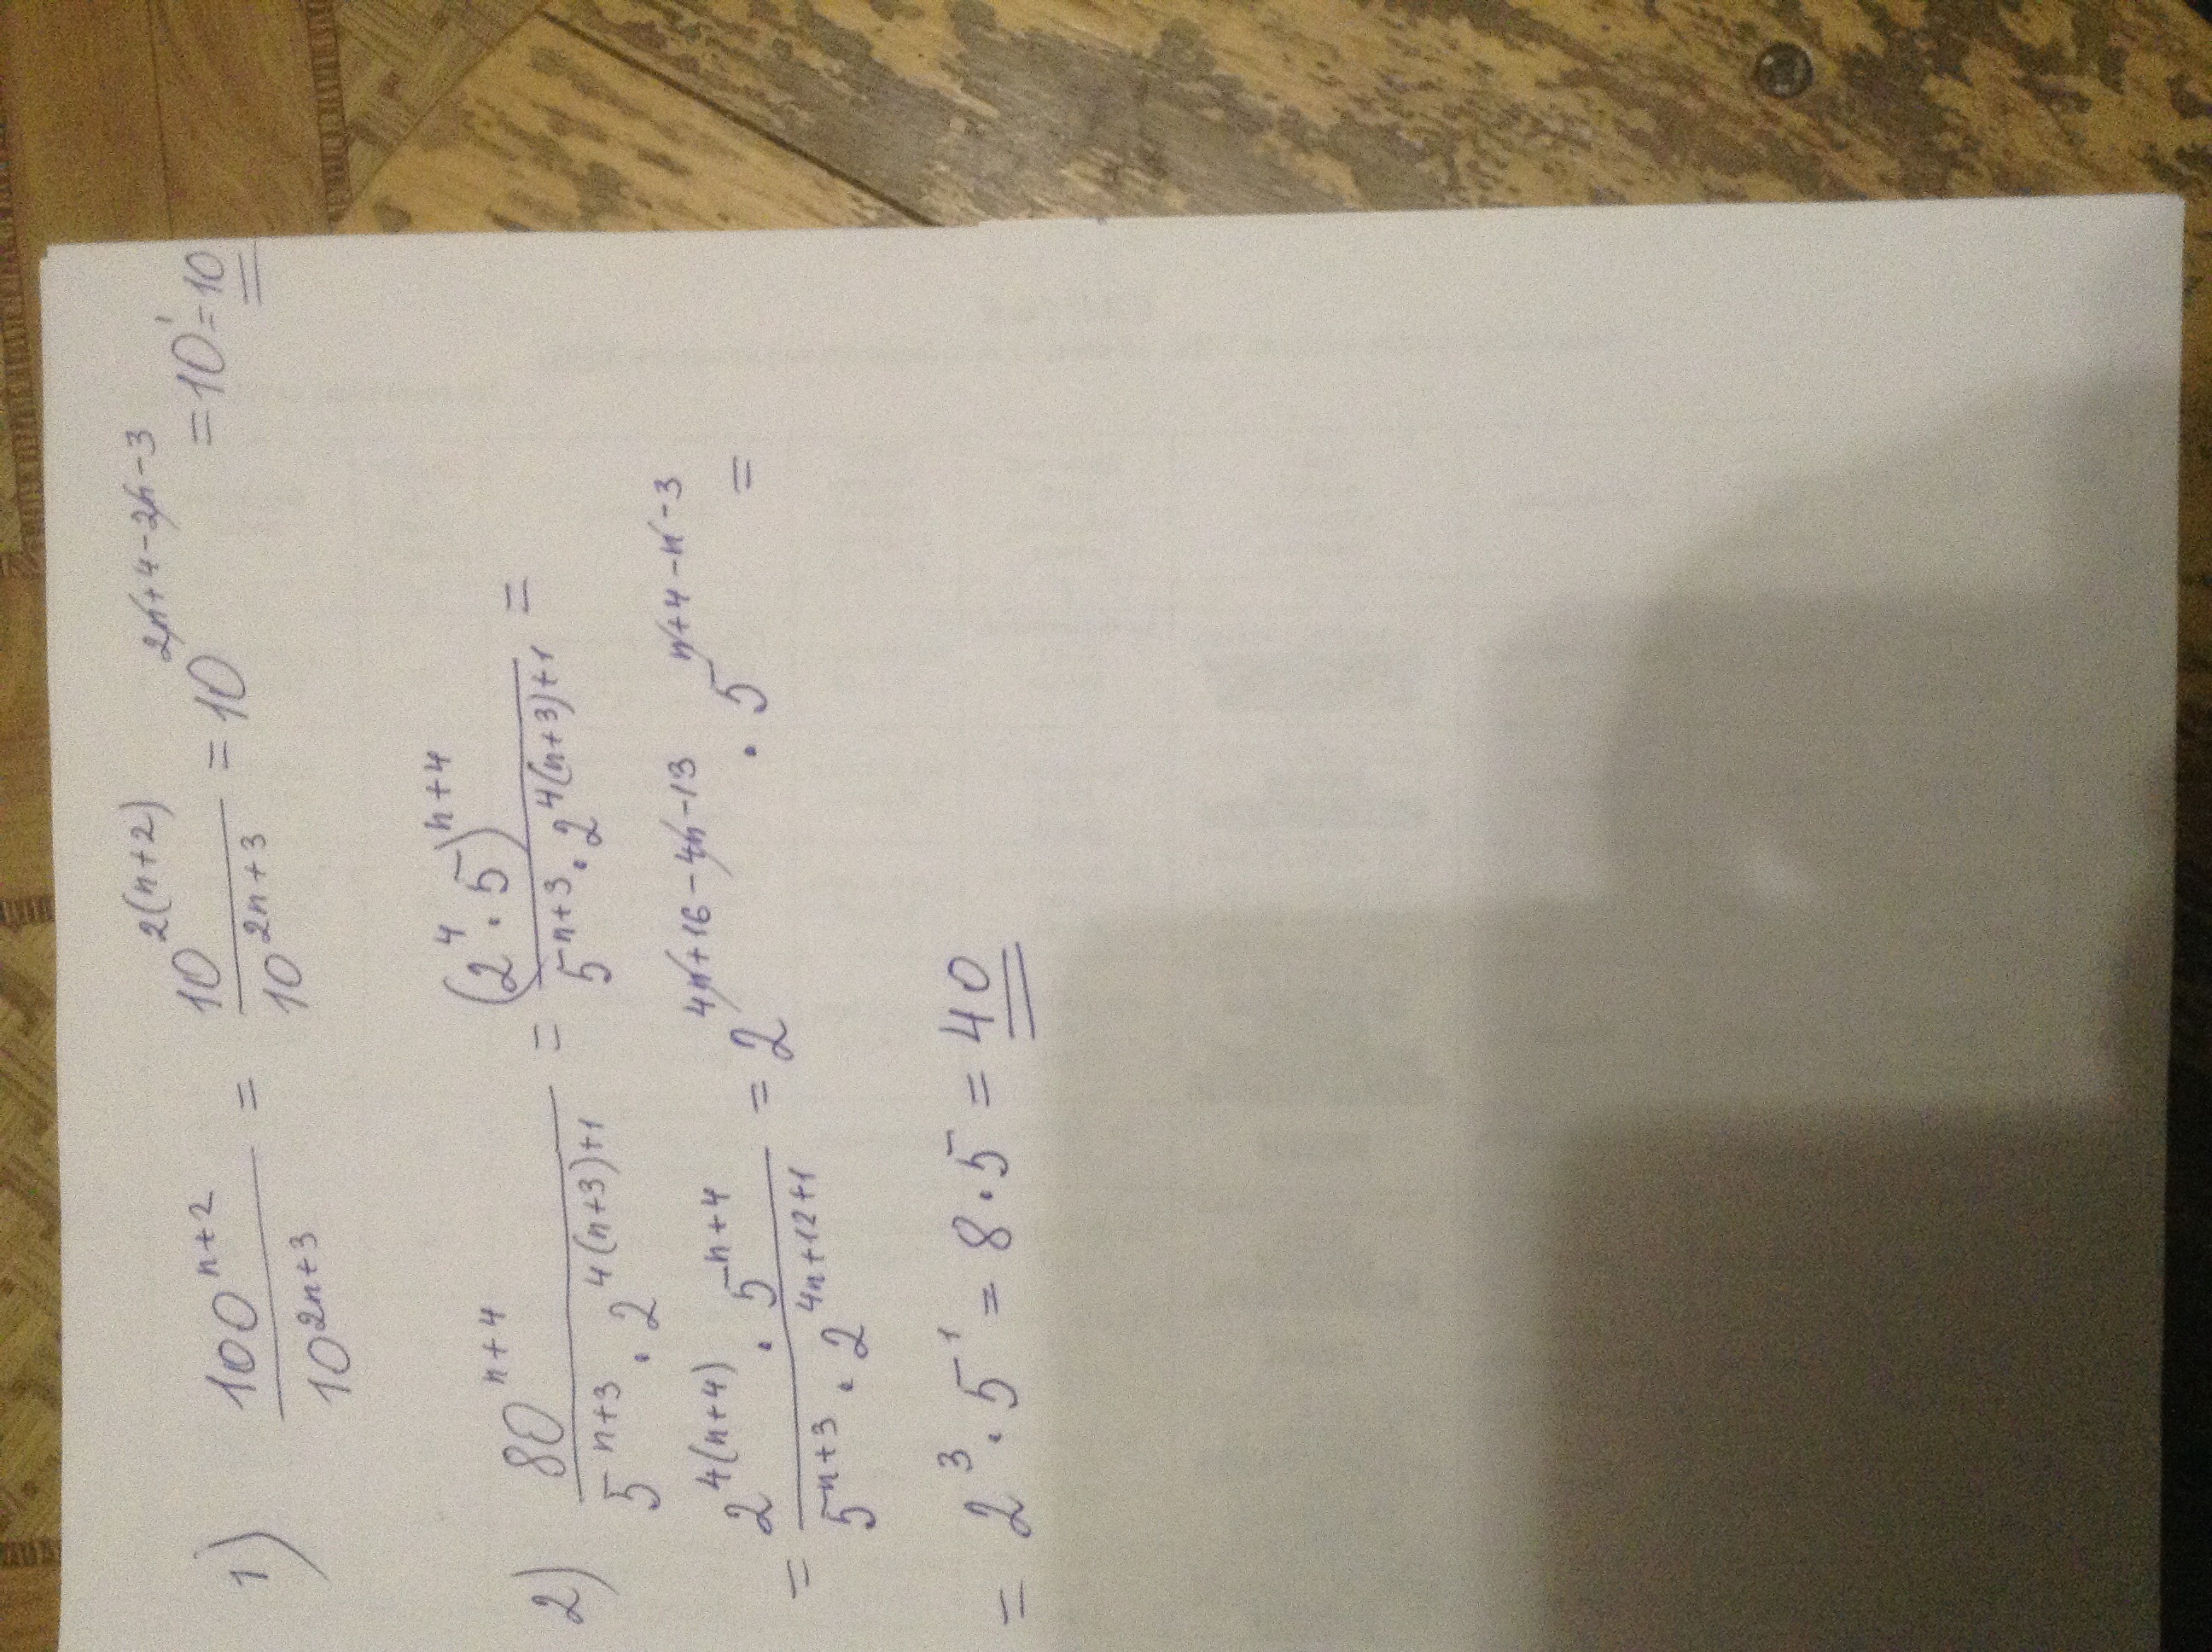 1) 100^(n+2) / 10^(2n+3) = 10^(2(n+2)) / 10^(2n+3) = 10^(2n+4-2n-3) = 10^1 = 10
2) 80^(n+4) / (5^(n+3) · 2^(4(n+3)+1)) = (2^4 · 5)^(n+4) / (5^(n+3) · 2^(4(n+3)+1)) =
= 2^(4(n+4)) · 5^(n+4) / (5^(n+3) · 2^(4n+12+1)) = 2^(4n+16-4n-13) · 5^(n+4-n-3) =
= 2^3 · 5^1 = 8 · 5 = 40